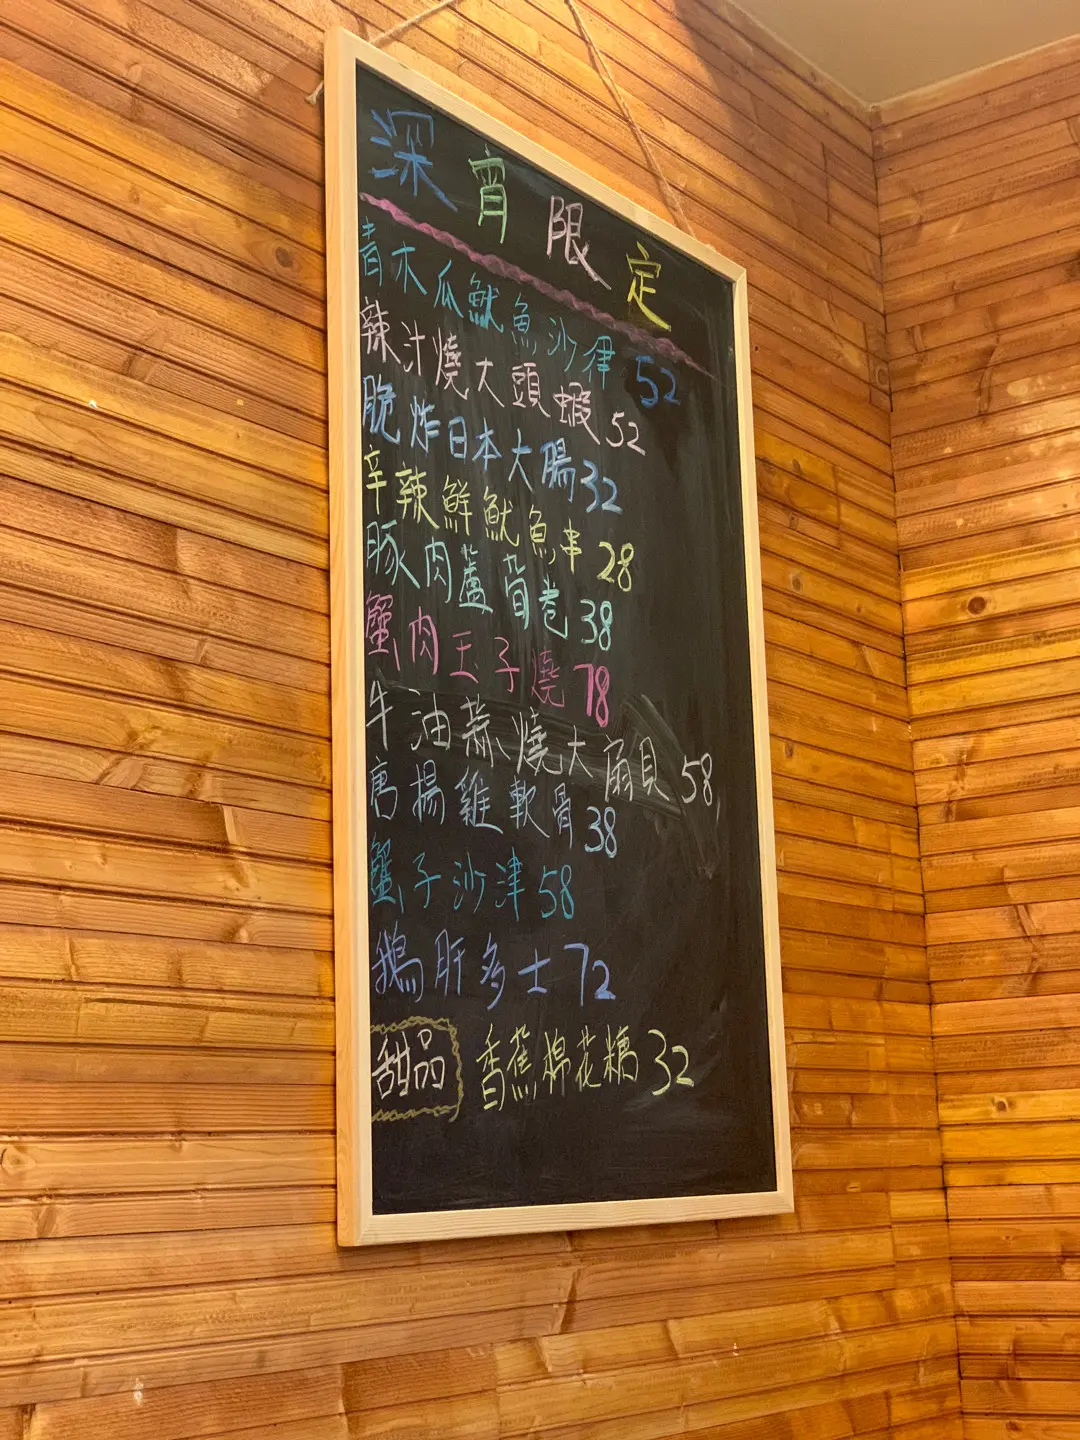 深宵限定
青木瓜魷魚沙律 52
辣汁燒大頭蝦 52
脆炸日本大腸 32
辛辣鮮魷魚串 28
豚肉蘆筍卷 38
蟹肉玉子燒 78
牛油蒜燒大扇貝 58
唐揚雞軟骨 38
蟹子沙津 58
鵝肝多士 72
甜品 香蕉棉花糖 32